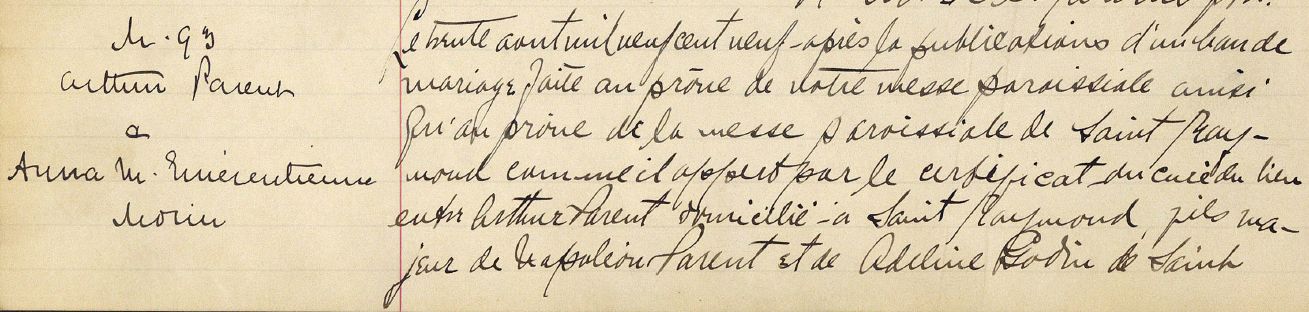 M. 93
Arthur Parent
a
Anna M. Emérentienne
Morin
Le trente aout mil neuf cent neuf - après la publications d'un ban de
mariage faite au prône de notre messe paroissiale ainsi
qu'au prône de la messe paroissiale de Saint Ray-
mond comme il appert par le certificat du curé du lieu
entre Arthur Parent domicilié à Saint Raymond, fils ma-
jeur de Napoléon Parent et de Adeline Godin de Saint